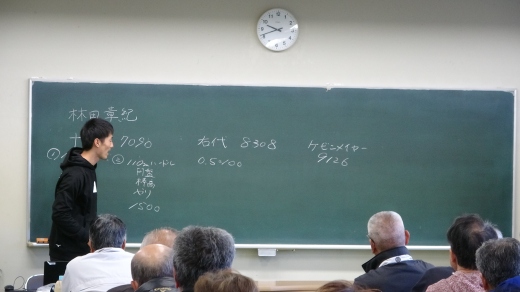 林田章紀
十 7090
右代 8308
ケビンメイヤー
9126
① ⑥ 110mハードル
円盤
棒高
やり
1500